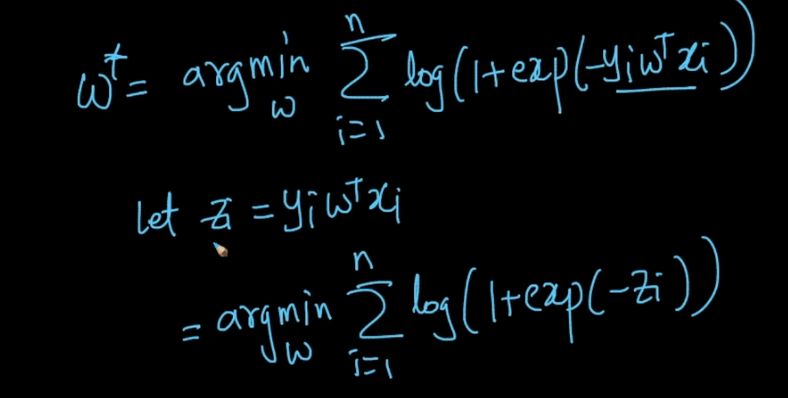 w^† = argmin_w Σ_{i=1}^{n} log(1+exp(-y_i w^T x_i))
let z_i = y_i w^T x_i
= argmin_w Σ_{i=1}^{n} log(1+exp(-z_i))